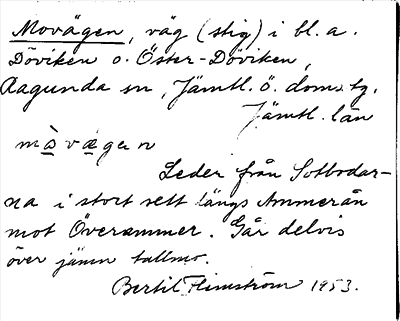 Movägen, väg (stig) i bl. a.
Döviken o. Öster-Döviken,
Ragunda sn, Jämtl. ö. doms. tg.
Jämtl. län
mò̱vä̱gan
Leder från Sotbodar-
na i stort sett längs Ammerån
mot Överammer. Går delvis
över jämn tallmo.
Bertil Flemström 1953.